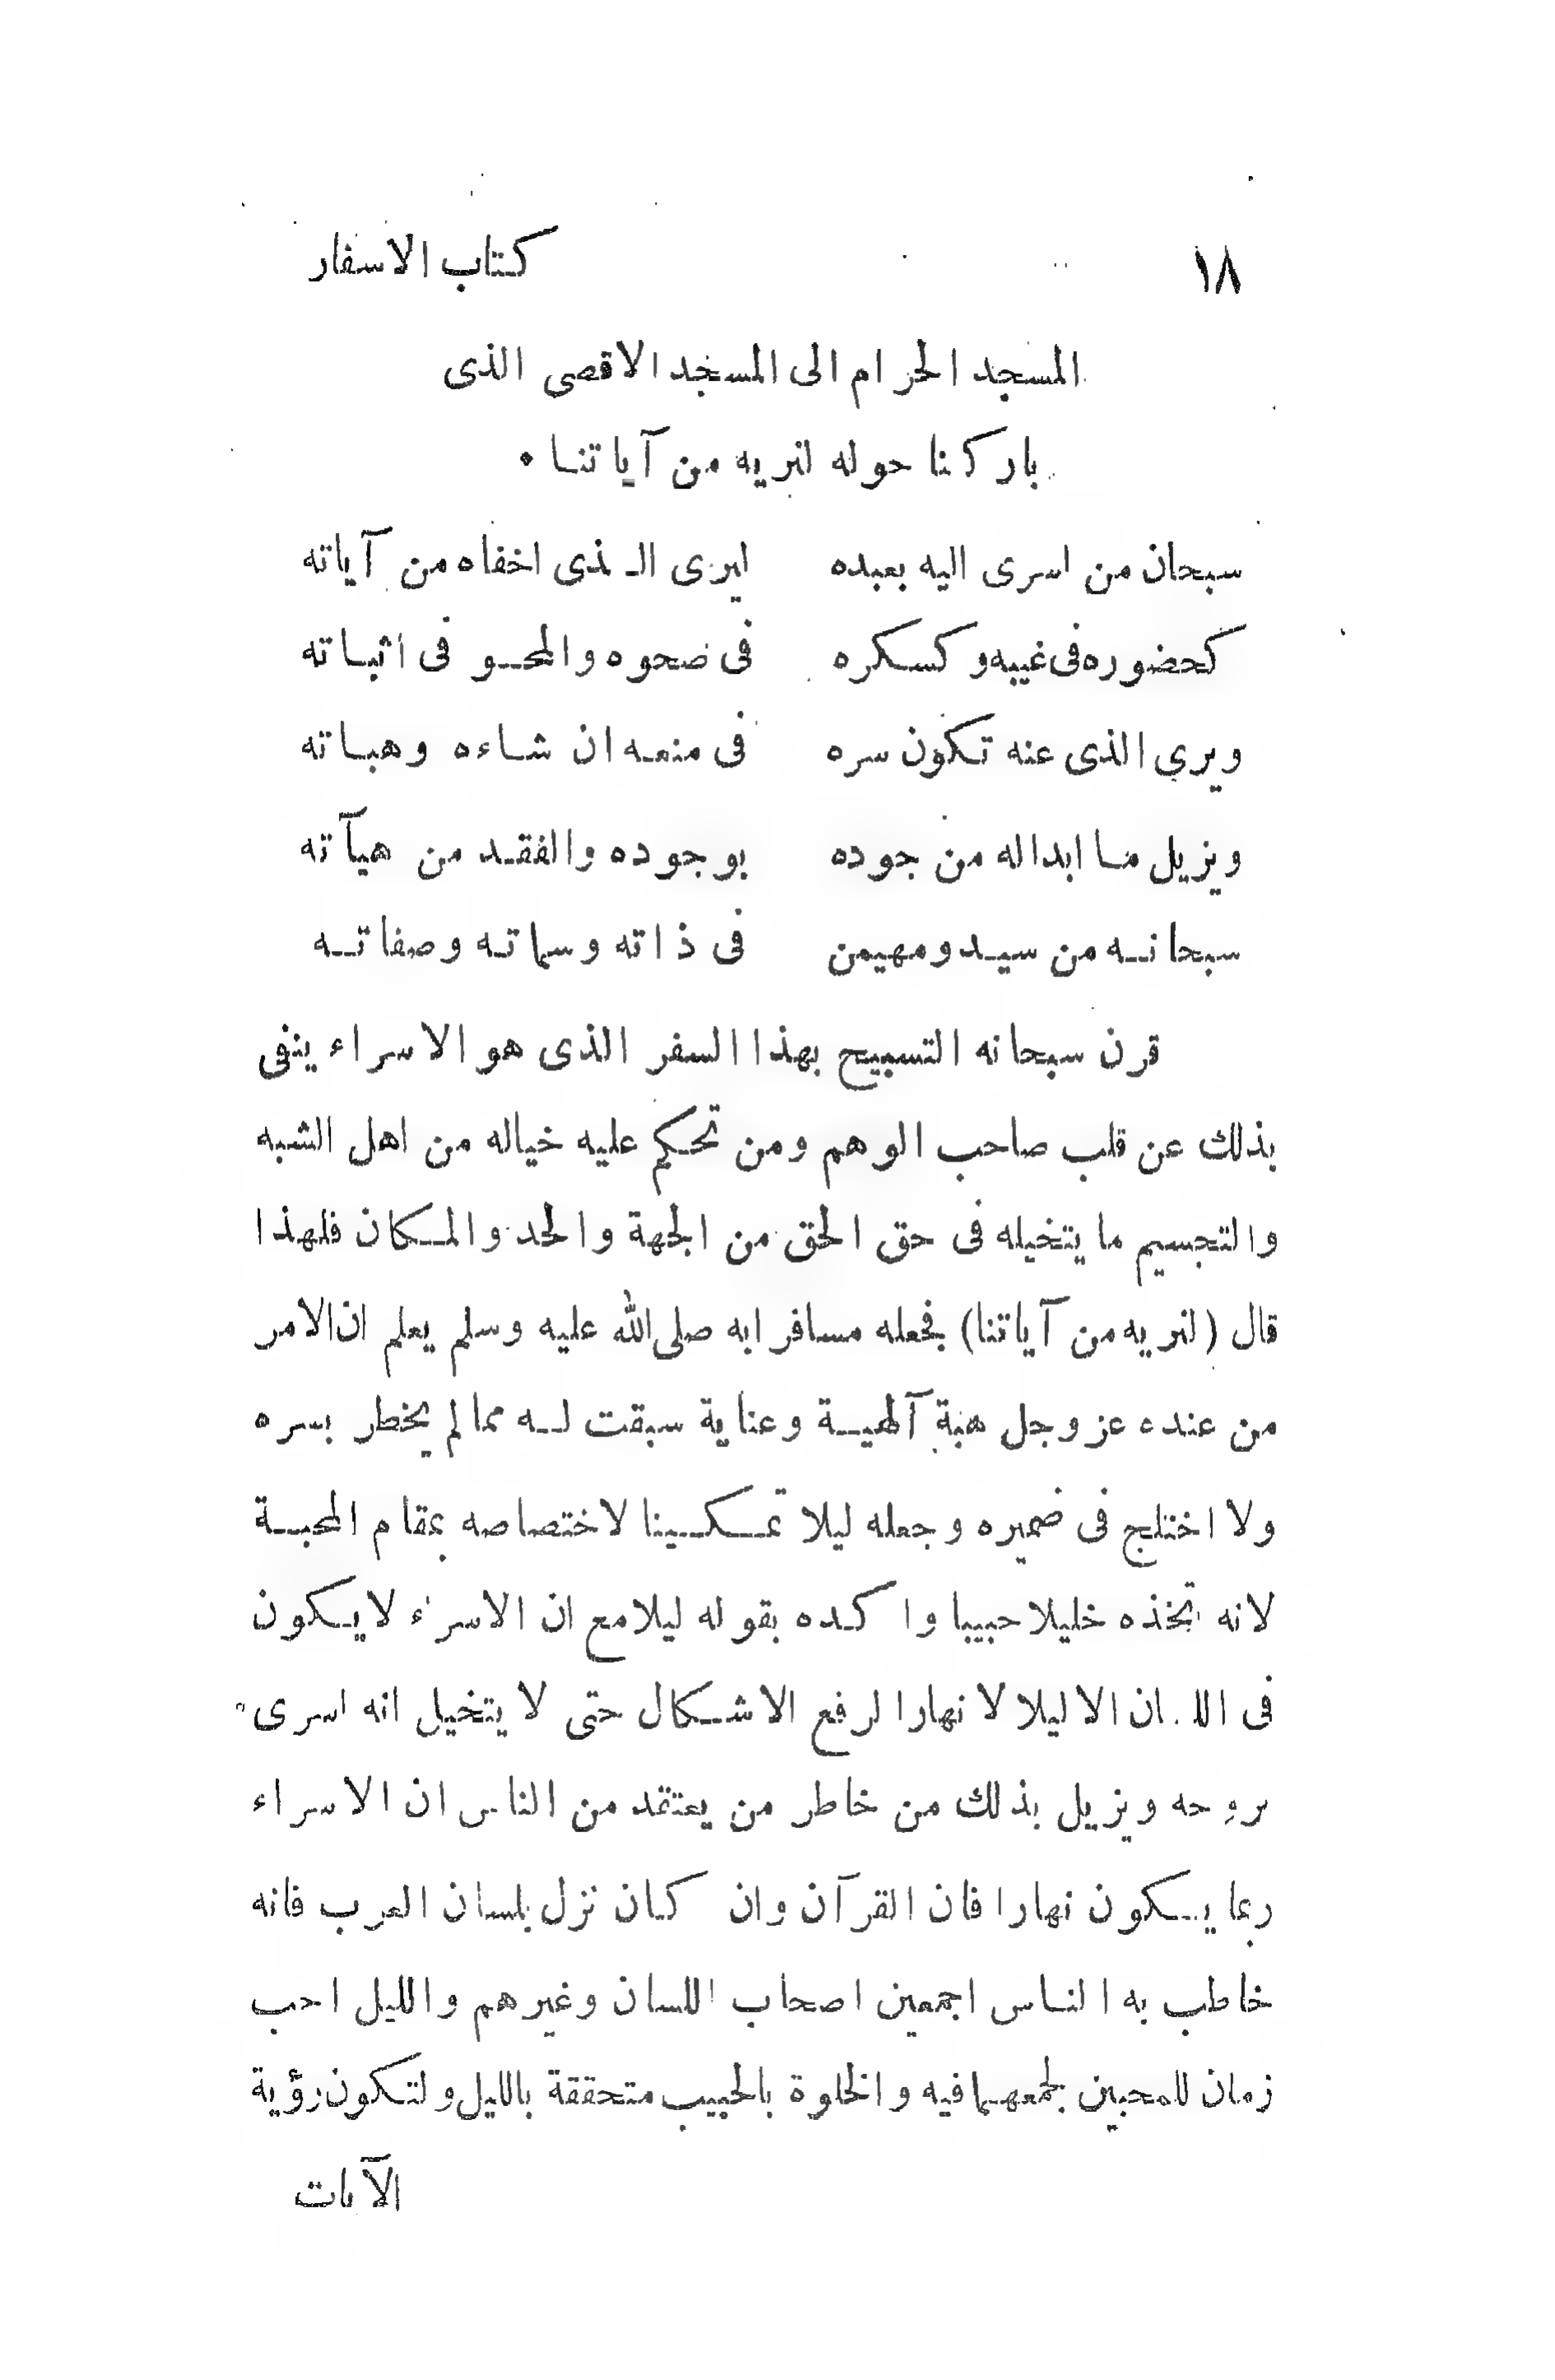 ١٨ كتاب الاسفار
المسجد الحرام الى المسجد الاقصى الذى
باركنا حوله لنريه من آياتنا ٠
سبحان من اسرى اليه بعبده ليرى الذى اخفاه من آياته
كحضوره فى غيبه وكسكره فى صحوه والمحو فى اثباته
ويرى الذى عنه تكون سره فى منعه ان شاءه وهباته
ويزيل ما ابداله من جوده بوجوده والفقد من هيآته
سبحانه من سيد ومهيمن فى ذاته وسماته وصفاته
قرن سبحانه التسبيح بهذا السفر الذى هو الاسراء ينفى
بذلك عن قلب صاحب الوهم ومن تحكم عليه خياله من اهل الشبه
والتجسيم ما يتخيله فى حق الحق من الجهة والحد والمكان فلهذا
قال (لنريه من آياتنا) فجعله مسافرا به صلى الله عليه وسلم يعلم ان الامر
من عنده عز وجل هبة آلهية وعناية سبقت له مما لم يخطر بسره
ولا اختلج فى ضميره وجعله ليلا تمكينا لاختصاصه بمقام المحبة
لانه اتخذه خليلا حبيبا واكده بقوله ليلا مع ان الاسراء لا يكون
فى اللسان الا ليلا لا نهارا لرفع الاشكال حتى لا يتخيل انه اسرى
بروحه ويزيل بذلك من خاطر من يعتقد من الناس ان الاسراء
ربما يكون نهارا فان القرآن وان كان نزل بلسان العرب فانه
خاطب به الناس اجمعين اصحاب اللسان وغيرهم والليل احب
زمان للمحبين لجمعهما فيه والخلوة بالحبيب متحققة بالليل ولتكون رؤية
الآيات